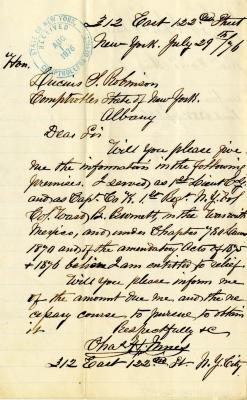 312 East 122nd Street
New York. July 29th /76
Hon.
Lucius Robinson
Comptroller State of New York.
Albany
Dear Sir
Will you please give
me the information in the following
premises. I served as 1st Lieut
and as Capt. Co K, 1st Regt. N.Y. Vol
Col Ward B. Burnett, in the War with
Mexico, and under Chapter
1870 and of the amendatory Acts of 1875
+ 1876 believe I am entitled to relief.
Will you please inform me
of the amount due me, and the ne
cessary course to pursue to obtain
it
Respectfully &c
Chas H Innes
312 East 122nd St. N.Y. City
STATE OF NEW YORK
RECEIVED
AUG
1876
COMPTROLLER'S